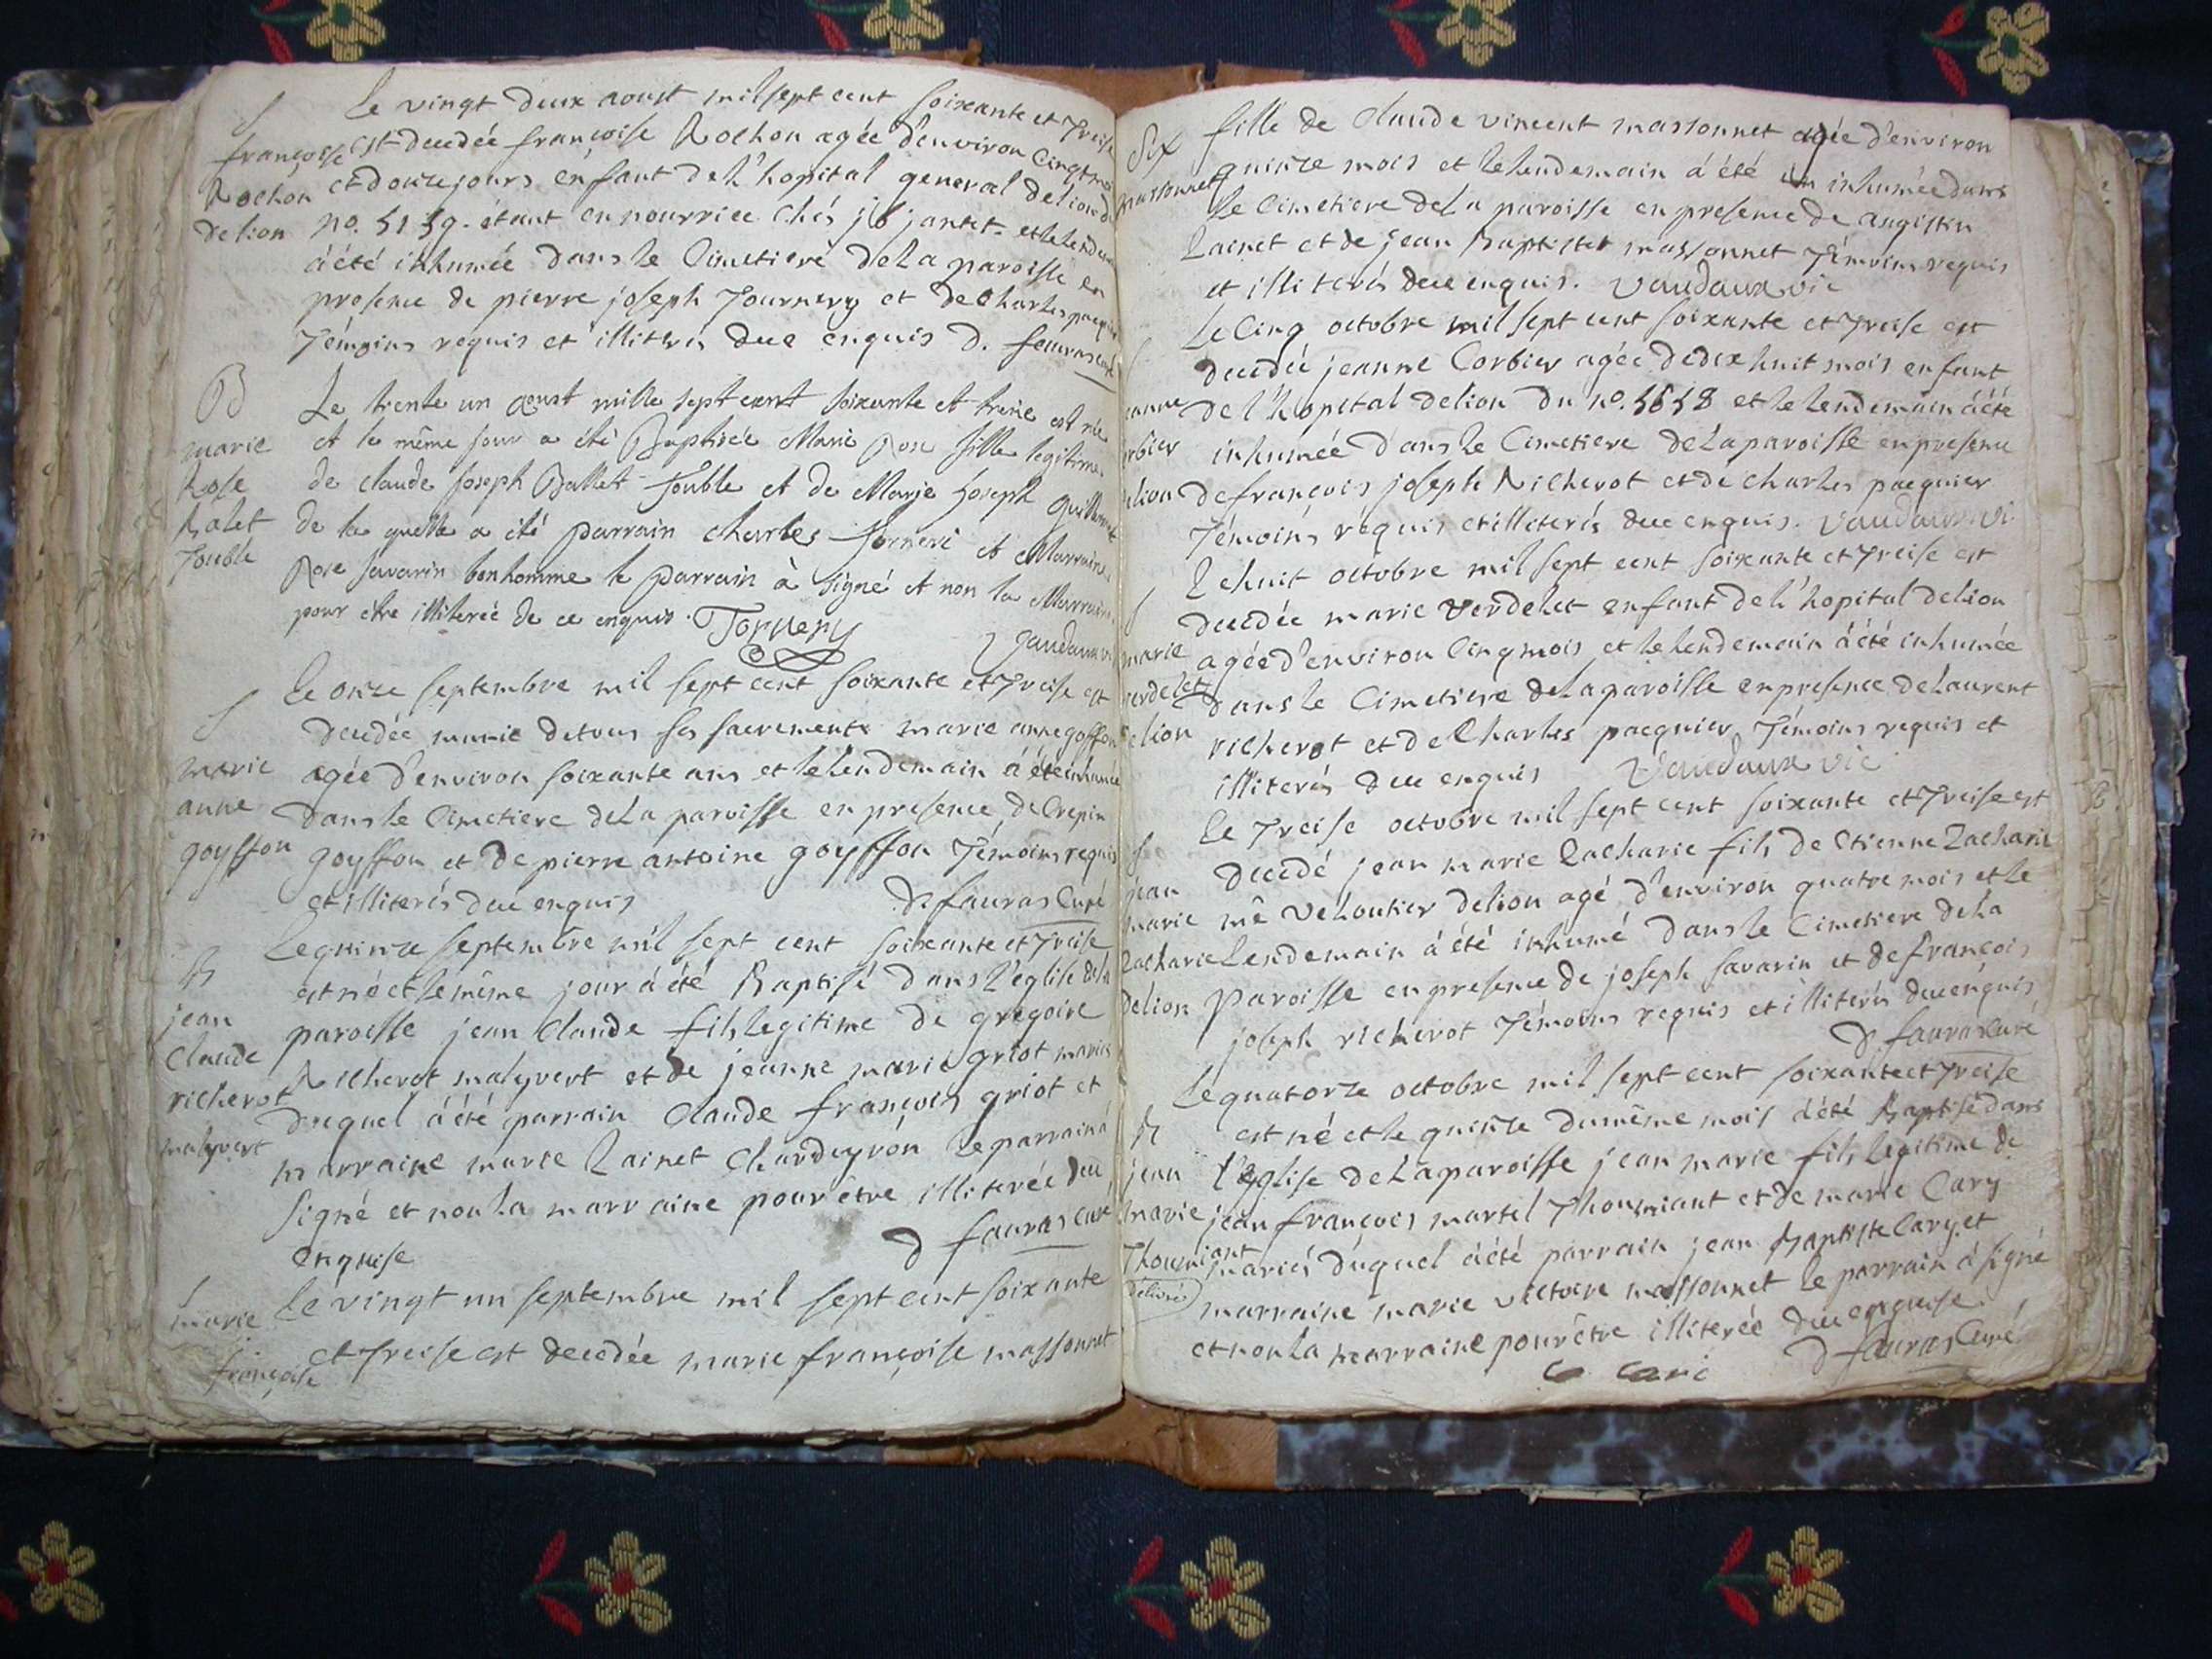 Le vingt deux aoust mil sept cent soixante et treise
françoise est decedée françoise Rochon agée d'environ cinq mois
Rochon et douze jours enfant de l'hopital general de lion du
de lion no. 5159. étant en nourrice chés jb jantet. et le lendemain
à été inhumée dans le Cimetiere de La paroisse en
presence de pierre joseph Tournery et de Charles pacquier
Témoins requis et illiterés dece enquis D. fauras curé
B
marie
Rose
Ralet
Jouble
Le trente un aoust mille sept cent soixante et treise est née
et le même jour a été Baptisée Marie Rose fille legitime
de claude joseph Ballet Jouble et de Marie Joseph
de la quelle a été parrain charles Forneri et Marraine
Rose savarin bonhomme le parrain à signé et non la Marraine
pour être illiterée de ce enquis. Tornery
Vaudaux vi
S
marie
anne
goyffon
Le onze septembre mil sept cent soixante et treise est
decedée munie de tous ses sacrements marie anne goffon
agée d'environ soixante ans et le lendemain à été inhumée
dans le Cimetiere de La paroisse en presence de Crepin
goyffon et de pierre antoine goyffon Témoins requis
et illiterés dece enquis D. fauras Curé
B
jean
Claude
richerot
malyvert
Le quinze septembre mil sept cent soixante et treise
est né et le même jour à été Baptisé dans l'église de la
paroisse jean Claude fils legitime de gregoire
Richerot malyvert et de jeanne marie griot mariés
duquel à été parrain Claude françois griot et
marraine marie Lainet Chardeyron Le parrain à
signé et non La marraine pour être illiterée dece
enquise D fauras curé
S
marie
françoise
Le vingt un septembre mil sept cent soixante
et treise est decedée marie françoise massonnet
massonnet
fille de Claude vincent massonnet agée d'environ
quinze mois et le lendemain à été inhumée dans
Le Cimetiere de La paroisse en presence de augistin
Lainet et de jean Baptiste massonnet Témoins requis
et illiterés dece enquis. Vaudaux vic
S
jeanne
corbier
de lion
Le Cinq octobre mil sept cent soixante et treise est
decedée jeanne Corbier agée de dix huit mois enfant
de l'hopital de lion du no. 5658 et le lendemain à été
inhumée dans le Cimetiere de La paroisse en presence
de françois joseph Richerot et de charles pacquier
Témoins requis et illiterés dece enquis. Vaudaux vi.
S
marie
verdelet
de lion
Le huit octobre mil sept cent soixante et treise est
decedée marie verdelet enfant de l'hopital de lion
agée d'environ Cinq mois et le lendemain à été inhumée
dans le Cimetiere de La paroisse en presence de Laurent
richerot et de Charles pacquier Témoins requis et
illiterés dece enquis Vaudaux vic
S
jean
marie
Zacharie
de lion
Le treise octobre mil sept cent soixante et treise est
decedé jean marie Zacharie fils de Etienne Zacharie
mê Veloutier de lion agé d'environ quatre mois et le
Lendemain à été inhumé dans le Cimetiere de La
paroisse en presence de joseph savarin et de françois
joseph richerot Témoins requis et illiterés dece enquis
D fauras curé
B
jean
marie
Thoumiant
délivré
Le quatorze octobre mil sept cent soixante et treise
est né et le quinze du même mois à été Baptisé dans
l'église de La paroisse jean marie fils legitime de
jean françois martel Thoumiant et de marie Cary
mariés duquel à été parrain jean Baptiste Cary et
marraine marie victoire massonnet le parrain à signé
et non La marraine pour être illiterée dece enquise
cari D fauras Curé